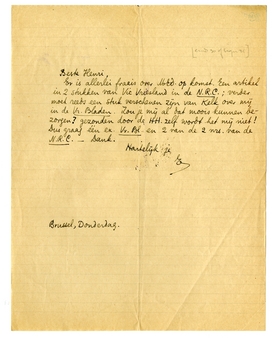 Beste Henri,
Er is allerlei fraais over M.E.D. op komst. Een artikel
in 2 stukken van Vic Vriesland in de N.R.C.; verder
moet reeds een stuk verschenen zijn van Kelk over mij
in de Vr. Bladen. Zou je mij al dat moois kunnen be-
zorgen? gezonden door de HH. zelf wordt het mij niet!
Dus graag één ex Vr. Bl. en 2 van de 2 nrs. van de
N.R.C. — Dank.
Hartelijk je
E.
Brussel, Donderdag.